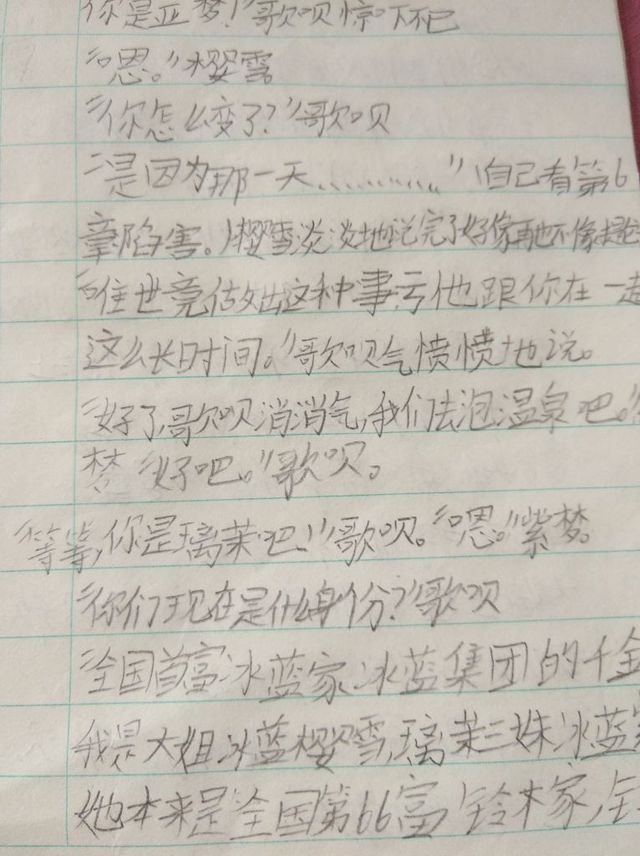 你是亚梦!”歌呗惊下不已
“恩。”樱雪
“你怎么变了?”歌呗
“是因为那一天…………”(自己看第6
章陷害。)樱雪淡淡地说完了好像再也不像
“唯世竟做出这种事亏他跟你在一起
这么长时间。”歌呗气愤愤地说。
“好了,歌呗消消气,我们去泡温泉吧。”
梦“好吧。”歌呗。
“等等,你是璃茉吧!”歌呗。“恩。”紫梦。
“你们现在是什么身份?”歌呗
“全国首富冰蓝家冰蓝集团的千金
我是大姐冰蓝樱雪,璃茉三妹冰蓝
她本来是全国第66富铃木家,